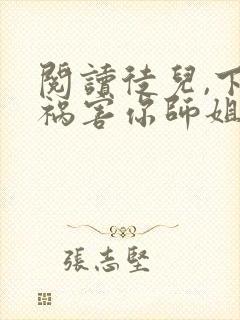 閱讀徒兒,下
禍害你師姐
張志堅